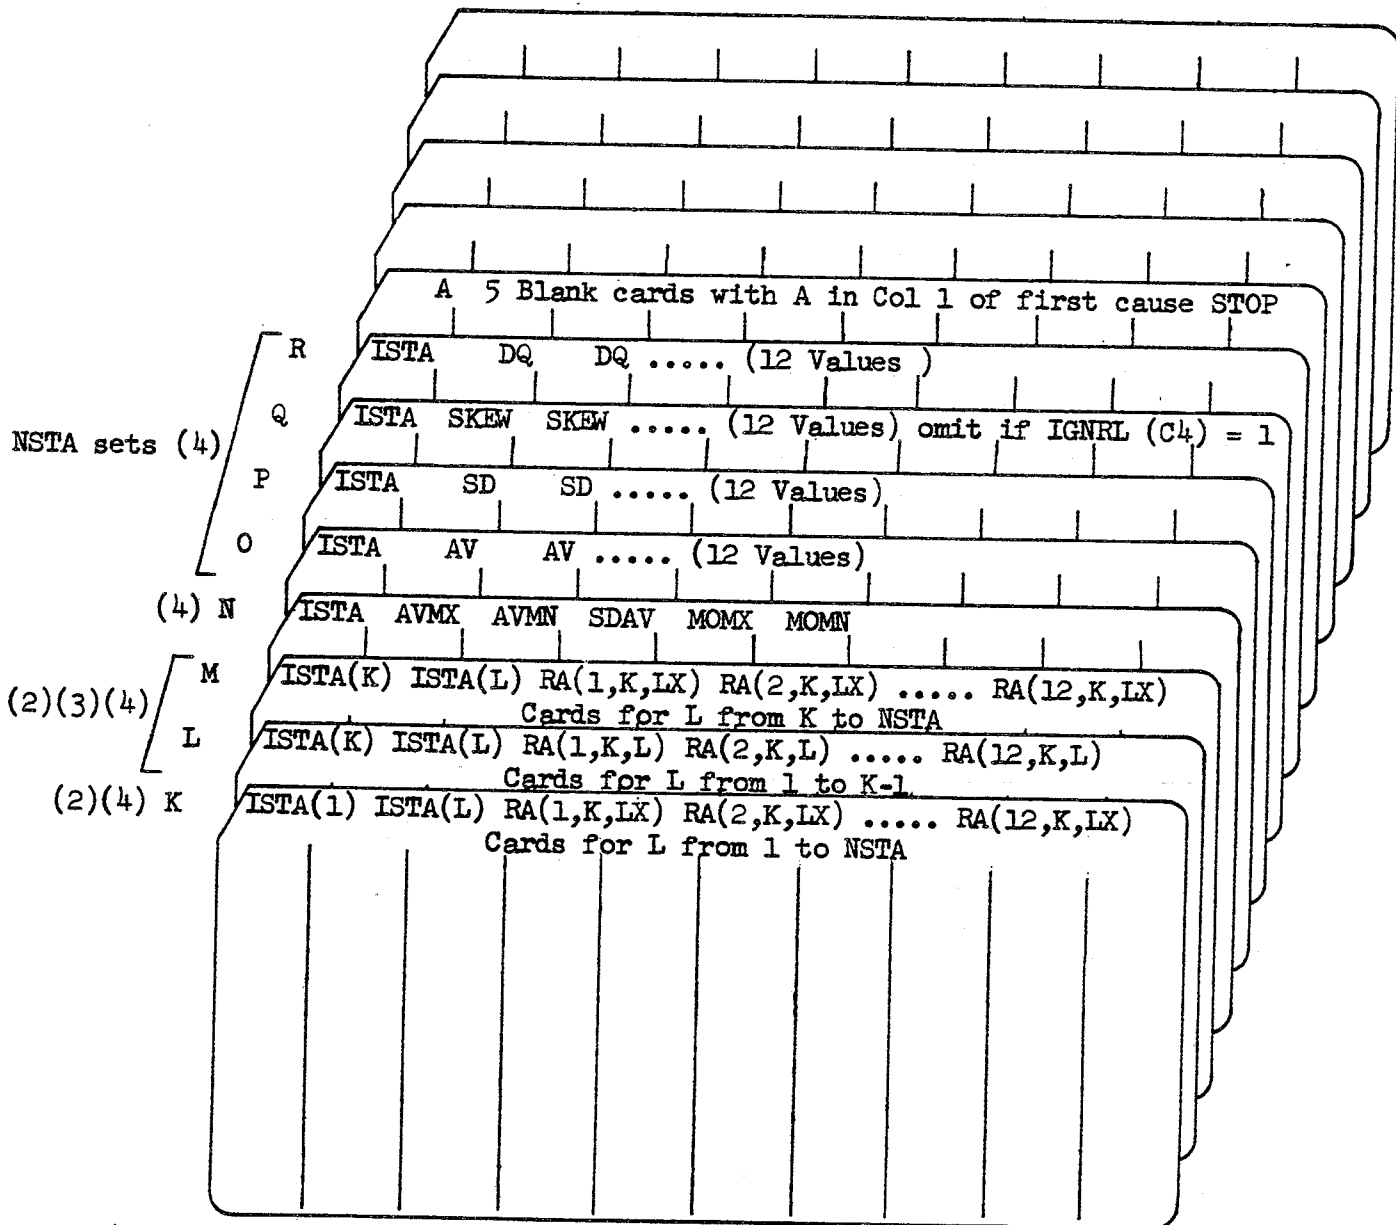 A 5 Blank cards with A in Col 1 of first cause STOP
R ISTA DQ DQ ..... (12 Values )
Q ISTA SKEW SKEW ..... (12 Values) omit if IGNRL (C4) = 1
NSTA sets (4)
P ISTA SD SD ..... (12 Values)
O ISTA AV AV ..... (12 Values)
(4) N ISTA AVMX AVMN SDAV MOMX MOMN
M ISTA(K) ISTA(L) RA(1,K,LX) RA(2,K,LX) ..... RA(12,K,LX)
Cards for L from K to NSTA
(2)(3)(4)
L ISTA(K) ISTA(L) RA(1,K,L) RA(2,K,L) ..... RA(12,K,L)
Cards for L from 1 to K-1
(2)(4) K ISTA(1) ISTA(L) RA(1,K,LX) RA(2,K,LX) ..... RA(12,K,LX)
Cards for L from 1 to NSTA